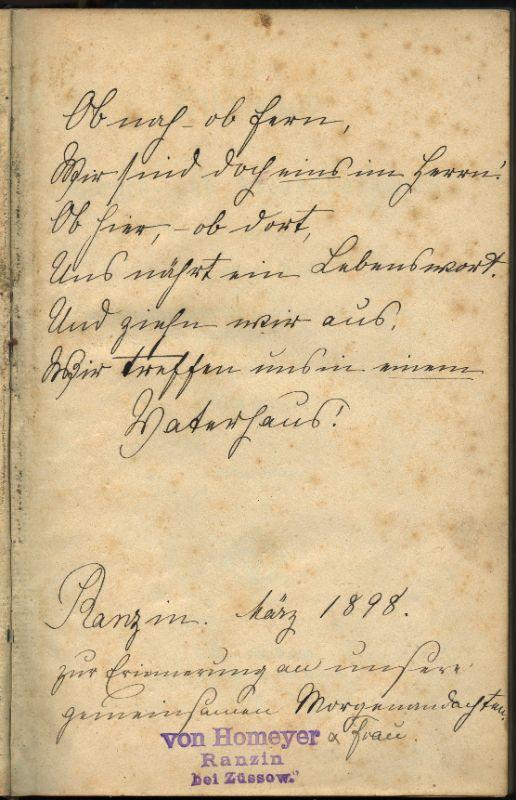 Ob nah – ob fern,
Wir sind doch eins im Herrn!
Ob hier, – ob dort,
Uns nährt ein Lebenswort.
Und ziehn wir aus,
Wir treffen uns in einem
Vaterhaus!
Ranzin. März 1898.
zur Erinnerung an unsere
gemeinsamen Morgenandachten.
von Homeyer & Frau.
Ranzin
bei Züssow.